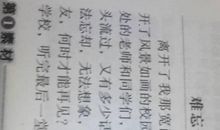 难忘
离开了我那宽
开了风景如画的校园
处的老师和同学们，
头流过，又有多少记
法忘却，无法想象，
友，何时才能再见？
学校，听完最后一堂